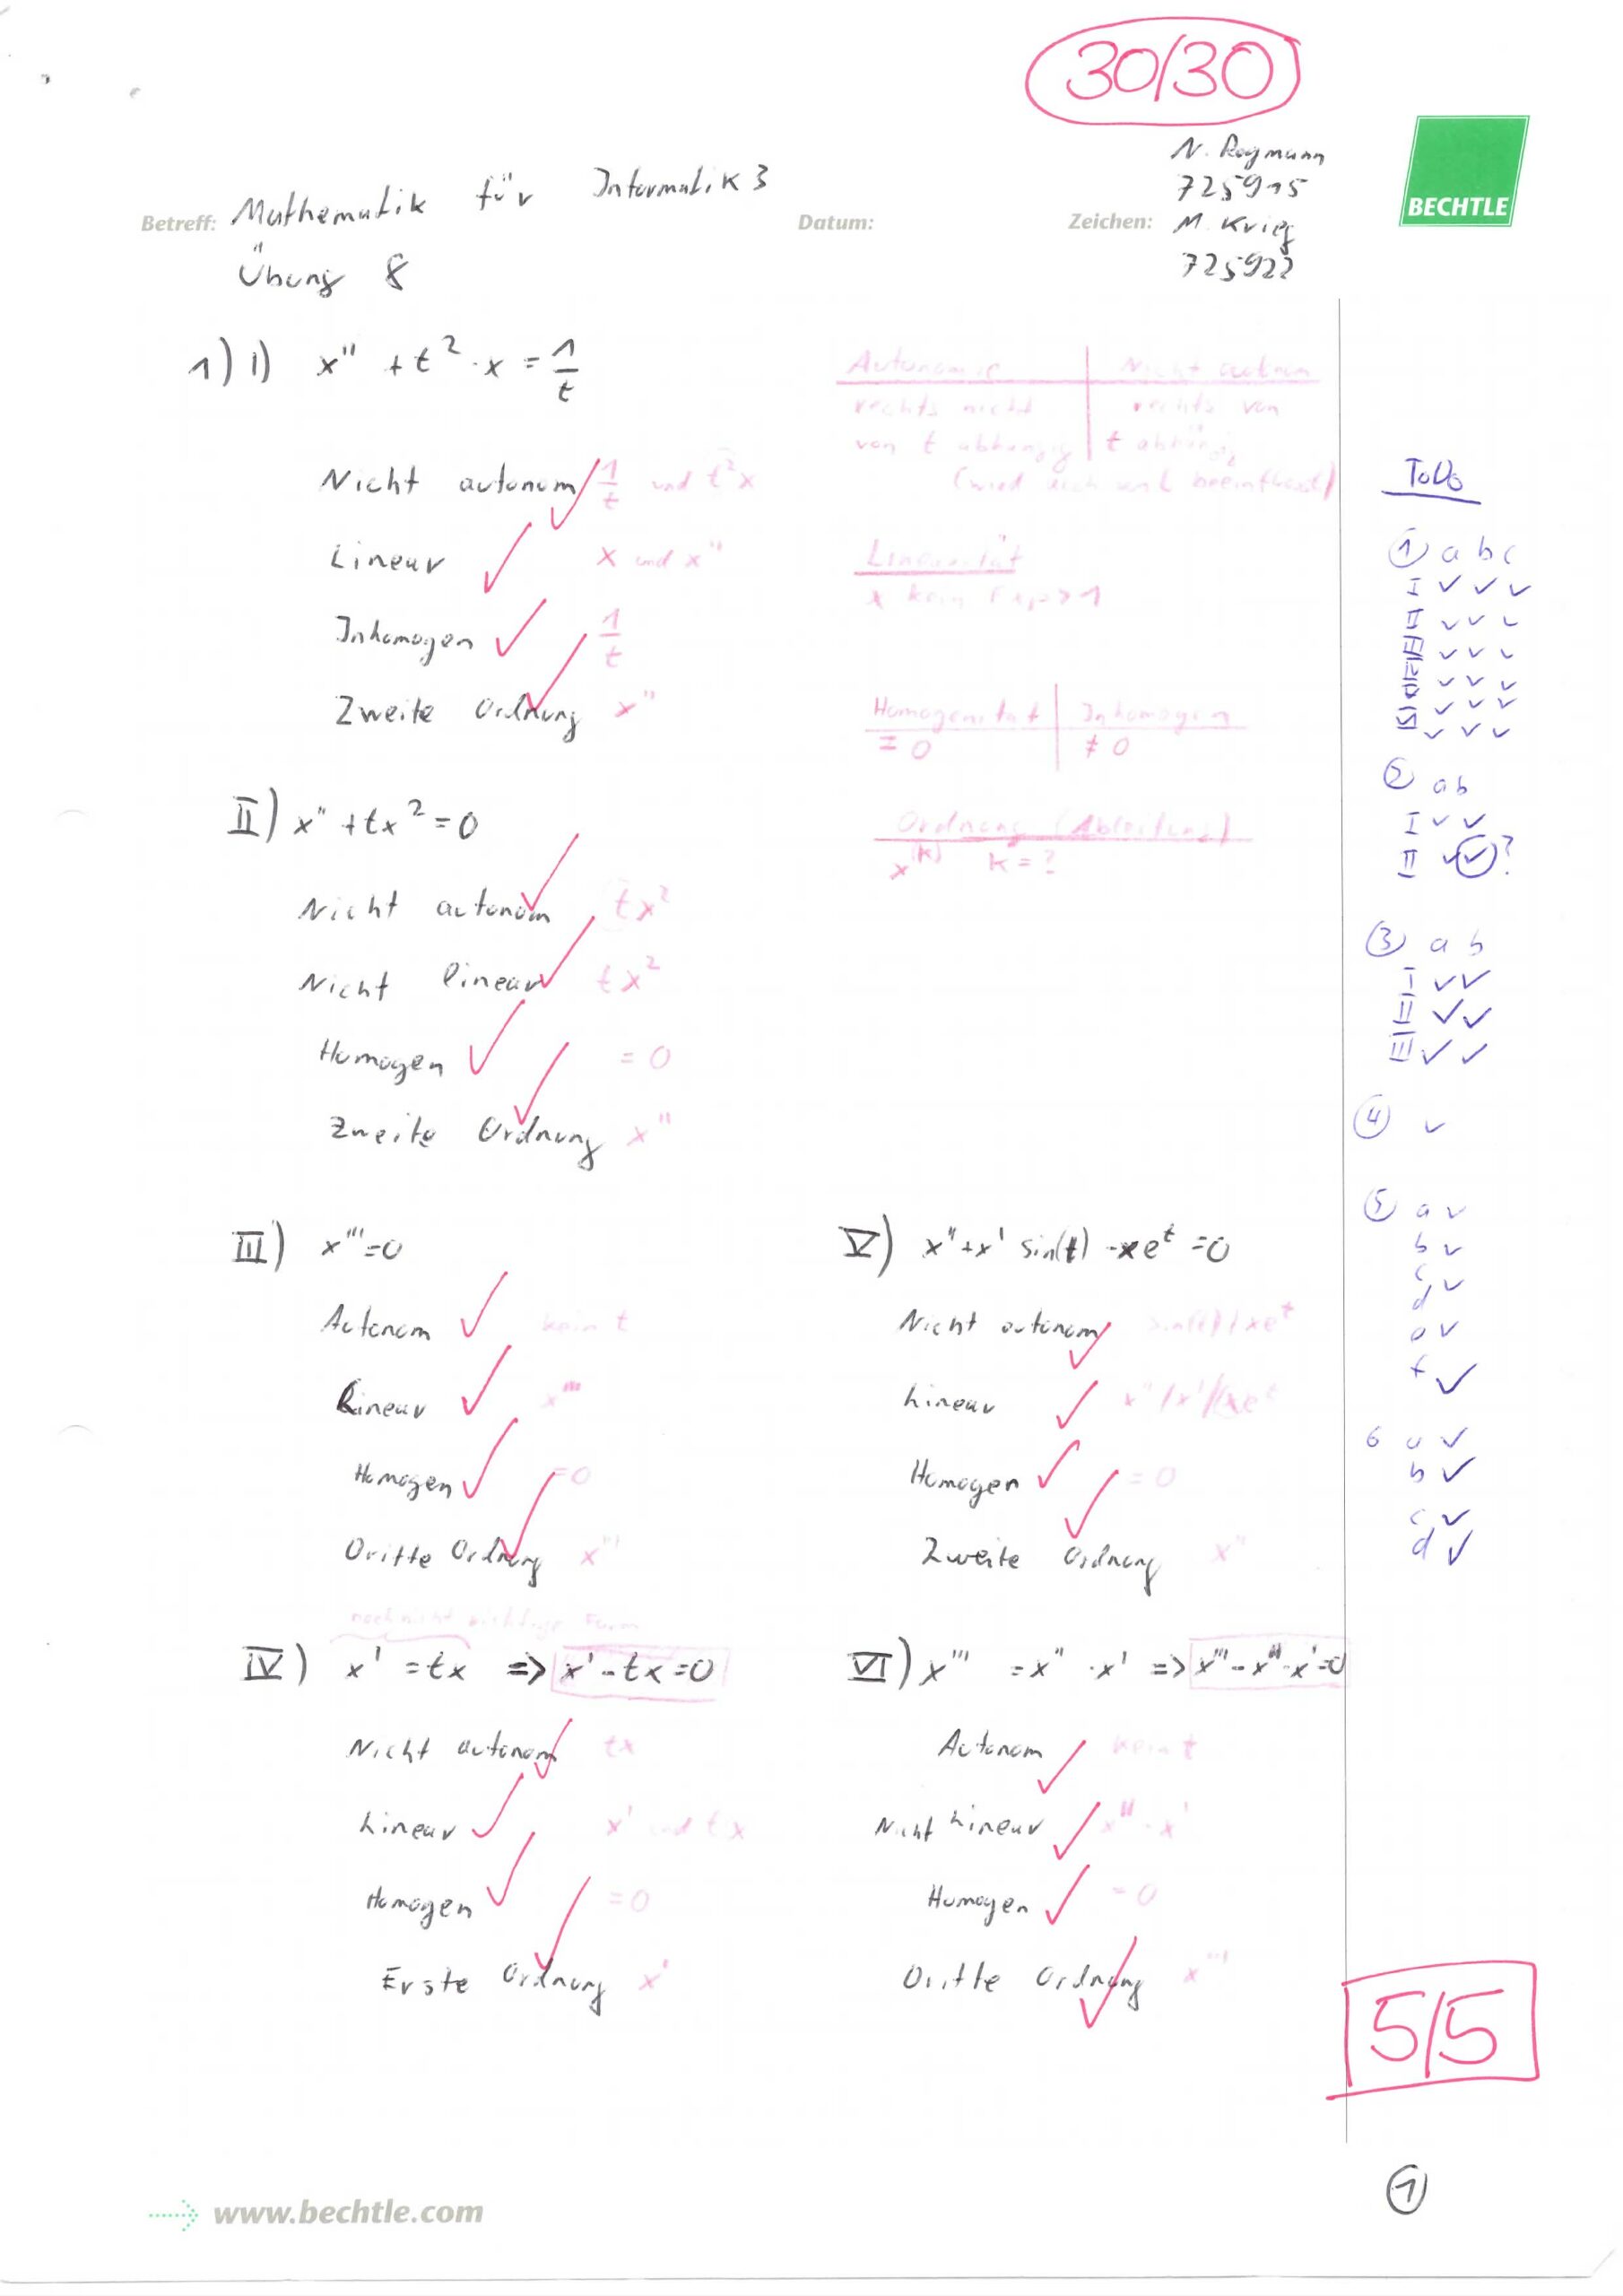 30/30
N. Rogmann
725915
BECHTLE
Betreff: Mathematik für Informatik 3
Datum:
Zeichen: M. Krieg
725922
Übung 8
1) I) x'' + t² · x = 1/t
Autonomie | Nicht autonom
rechts nicht | rechts von
von t abhängig | t abhängig
(wird auch von t beeinflusst)
Nicht autonom 1/t und t²x
Linear x und x''
Inhomogen 1/t
Zweite Ordnung x''
Linearität
x kein Exp > 1
Homogenität | Inhomogen
= 0 | ≠ 0
Ordnung (Ableitung)
x^(k) k = ?
II) x'' + tx² = 0
Nicht autonom tx²
Nicht linear tx²
Homogen = 0
Zweite Ordnung x''
III) x''' = 0
Autonom kein t
Linear x'''
Homogen = 0
Dritte Ordnung x'''
V) x'' + x' sin(t) - xe^t = 0
Nicht autonom sin(t) / xe^t
Linear x'' / x' / xe^t
Homogen = 0
Zweite Ordnung x''
noch nicht richtige Form
IV) x' = tx => x' - tx = 0
Nicht autonom tx
Linear x' und tx
Homogen = 0
Erste Ordnung x'
VI) x''' = x'' · x' => x''' - x'' · x' = 0
Autonom kein t
Nicht Linear x'' · x'
Homogen = 0
Dritte Ordnung x'''
ToDo
① a b c
I ✓ ✓ ✓
II ✓ ✓ ✓
III ✓ ✓ ✓
✓ ✓ ✓
✓ ✓ ✓
✓ ✓ ✓
② a b
I ✓ ✓
II ✓ ✓ ?
③ a b
I ✓ ✓
II ✓ ✓
III ✓ ✓
④ ✓
⑤ a ✓
b ✓
c ✓
d
e ✓
f ✓
6 a ✓
b ✓
c ✓
d ✓
5/5
①
www.bechtle.com